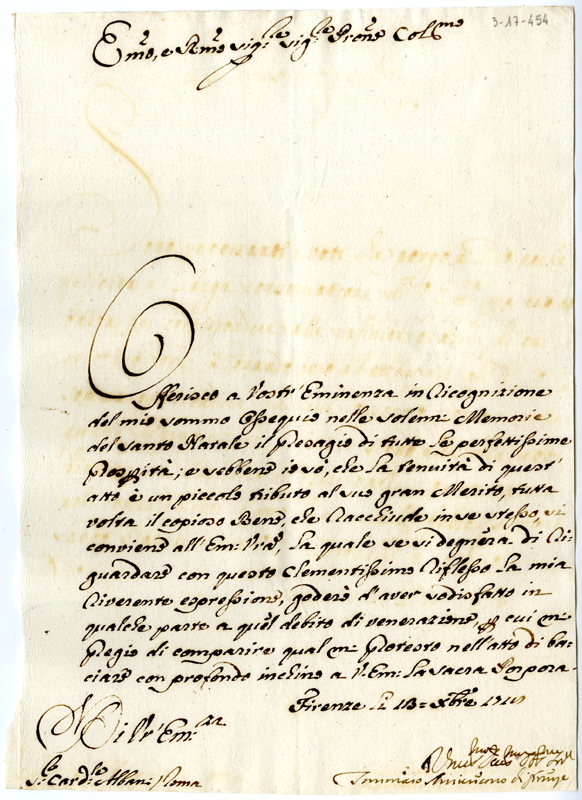 3-17-454
Em̃o, e Rm̃o Sig.re Sig.re Prõne Col.mo
Offerisco a Vostr' Eminenza in ricognizione
del mio sommo ossequio nelle solenni Memorie
del Santo Natale il presagio di tutte le perfettissime
prosperità; e sebbene io sò, che la tenuità di quest'
atto è un piccolo tributo al suo gran Merito, tutta
volta il copioso Bene, che racchiude in se stesso, si
conviene all'Em: Vrã, la quale se si degnerà di ri-
guardare con questo Clementissimo riflesso la mia
riverente espressione, goderò d'aver sodisfatto in
qualche parte a quel debito di venerazione, per cui mi
pregio di comparire qual mi protesto nell'atto di ba-
ciare con profondo inchino a V. Em: la Sacra Porpora.
Firenze li 13 Xbre
Di Vr' Em.za
S.r Card.le Alban: Roma
Tommaso di Firenze